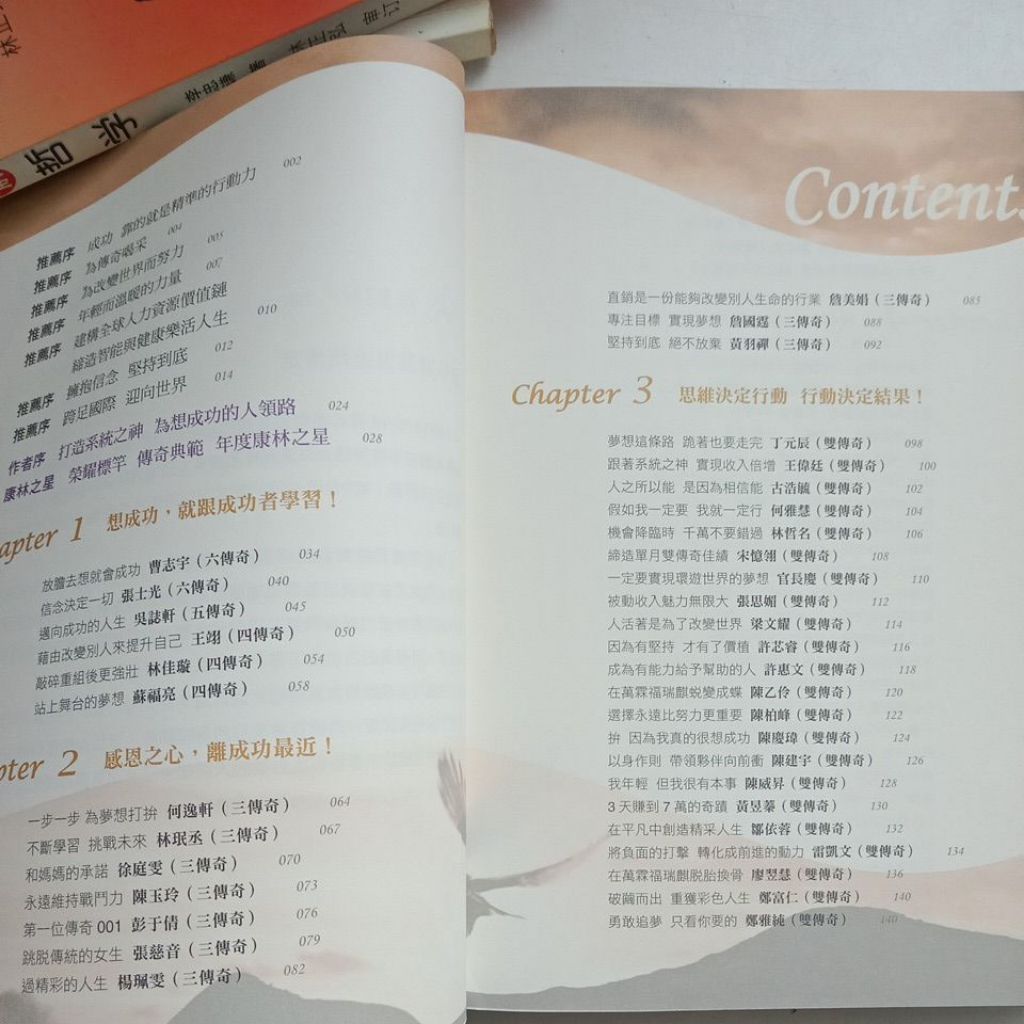 哲学
推薦序 成功 靠的就是精準的行動力 002
推薦序 為傳奇喝采 004
推薦序 為改變世界而努力 005
推薦序 年輕而溫暖的力量 007
推薦序 建構全球人力資源價值鏈
締造智能與健康樂活人生 010
推薦序 擁抱信念 堅持到底 012
推薦序 跨足國際 迎向世界 014
作者序 打造系統之神 為想成功的人領路 024
康林之星 榮耀標竿 傳奇典範 年度康林之星 028
apter 1 想成功,就跟成功者學習!
放膽去想就會成功 曹志宇(六傳奇) 034
信念決定一切 張士光(六傳奇) 040
邁向成功的人生 吳誌軒(五傳奇) 045
藉由改變別人來提升自己 王翊(四傳奇) 050
敲碎重組後更強壯 林佳璇(四傳奇) 054
站上舞台的夢想 蘇福亮(四傳奇) 058
pter 2 感恩之心,離成功最近!
一步一步 為夢想打拚 何逸軒(三傳奇) 064
不斷學習 挑戰未來 林珉丞(三傳奇) 067
和媽媽的承諾 徐庭雯(三傳奇) 070
永遠維持戰鬥力 陳玉玲(三傳奇) 073
第一位傳奇 001 彭于倩(三傳奇) 076
跳脫傳統的女生 張慈音(三傳奇) 079
過精彩的人生 楊珮雯(三傳奇) 082
Contents
直銷是一份能夠改變別人生命的行業 詹美娟(三傳奇) 085
專注目標 實現夢想 詹國霆(三傳奇) 088
堅持到底 絕不放棄 黃羽禪(三傳奇) 092
Chapter 3 思維決定行動 行動決定結果!
夢想這條路 跪著也要走完 丁元辰(雙傳奇) 098
跟著系統之神 實現收入倍增 王偉廷(雙傳奇) 100
人之所以能 是因為相信能 古浩毓(雙傳奇) 102
假如我一定要 我就一定行 何雅慧(雙傳奇) 104
機會降臨時 千萬不要錯過 林哲名(雙傳奇) 106
締造單月雙傳奇佳績 宋憶翎(雙傳奇) 108
一定要實現環遊世界的夢想 官長慶(雙傳奇) 110
被動收入魅力無限大 張思媚(雙傳奇) 112
人活著是為了改變世界 梁文耀(雙傳奇) 114
因為有堅持 才有了價值 許芯睿(雙傳奇) 116
成為有能力給予幫助的人 許惠文(雙傳奇) 118
在萬霖福瑞麒蛻變成蝶 陳乙伶(雙傳奇) 120
選擇永遠比努力更重要 陳柏峰(雙傳奇) 122
拚 因為我真的很想成功 陳慶瑋(雙傳奇) 124
以身作則 帶領夥伴向前衝 陳建宇(雙傳奇) 126
我年輕 但我很有本事 陳威昇(雙傳奇) 128
3 天賺到 7 萬的奇蹟 黃昱蓁(雙傳奇) 130
在平凡中創造精采人生 鄒依蓉(雙傳奇) 132
將負面的打擊 轉化成前進的動力 雷凱文(雙傳奇) 134
在萬霖福瑞麒脫胎換骨 廖翌慧(雙傳奇) 136
破繭而出 重獲彩色人生 鄭富仁(雙傳奇) 140
勇敢追夢 只看你要的 鄭雅純(雙傳奇) 140